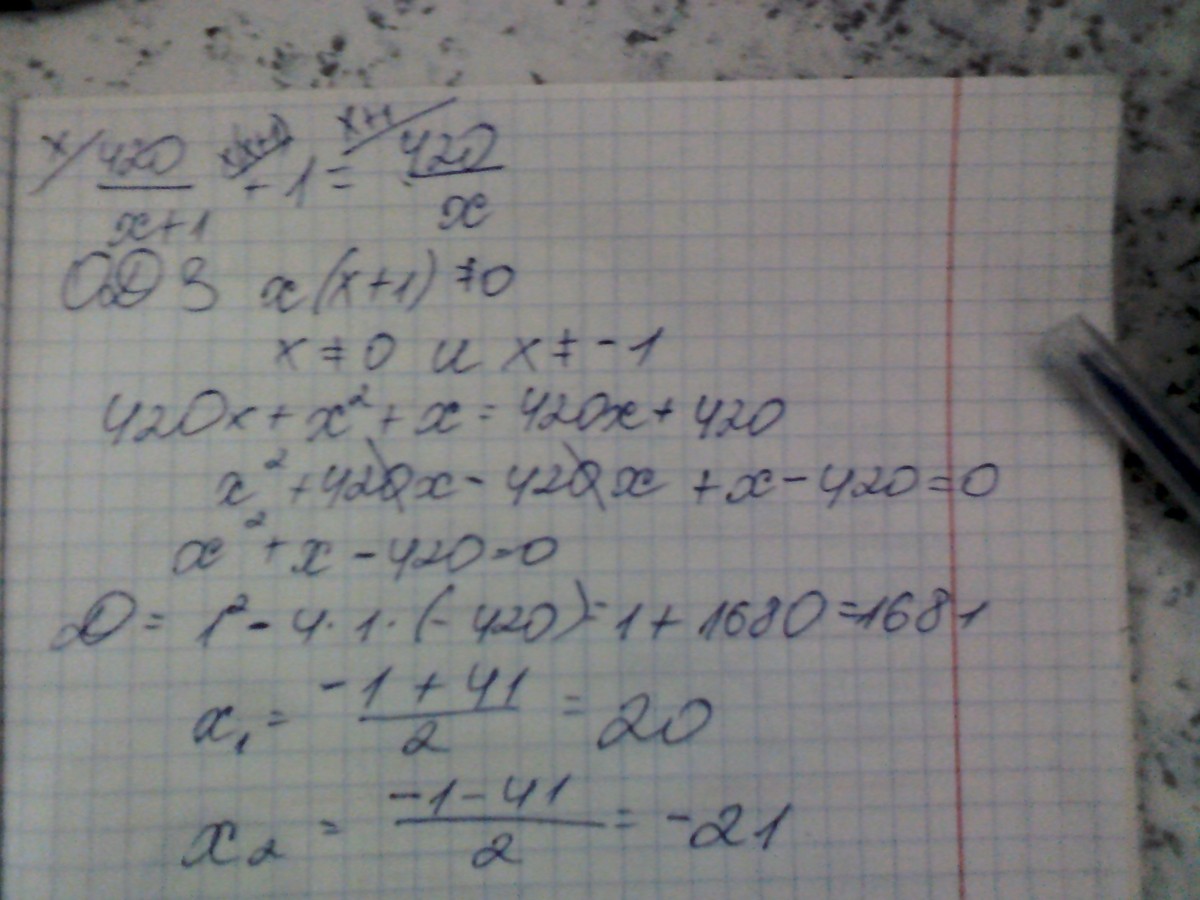 x/ 420/(x+1) x(x+1)/ - 1 = x+1/ 420/x
ОДЗ x(x+1) ≠ 0
x ≠ 0 и x ≠ -1
420x + x² + x = 420x + 420
x² + 420x - 420x + x - 420 = 0
x² + x - 420 = 0
D = 1² - 4·1·(-420) = 1 + 1680 = 1681
x₁ = (-1 + 41)/2 = 20
x₂ = (-1 - 41)/2 = -21